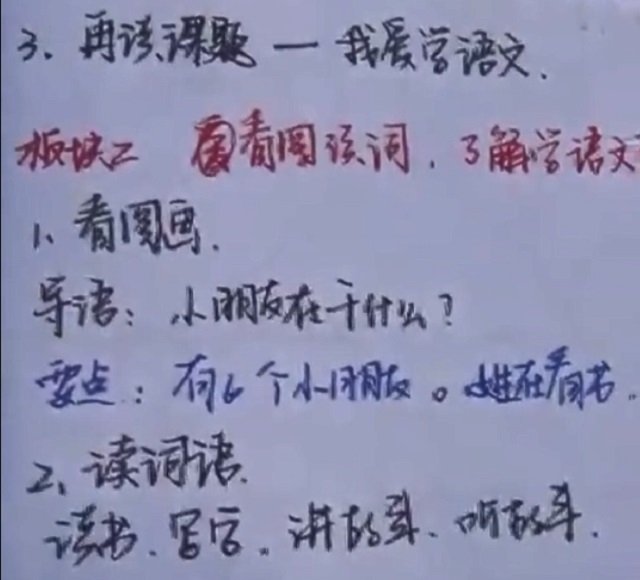 3、再读课题 — 我爱学语文.
板块二 看图读词,了解学语文
1、看图画.
导语:小朋友在干什么?
要点:有6个小朋友。她在看书。
2、读词语.
读书、写字。讲故事、听故事.